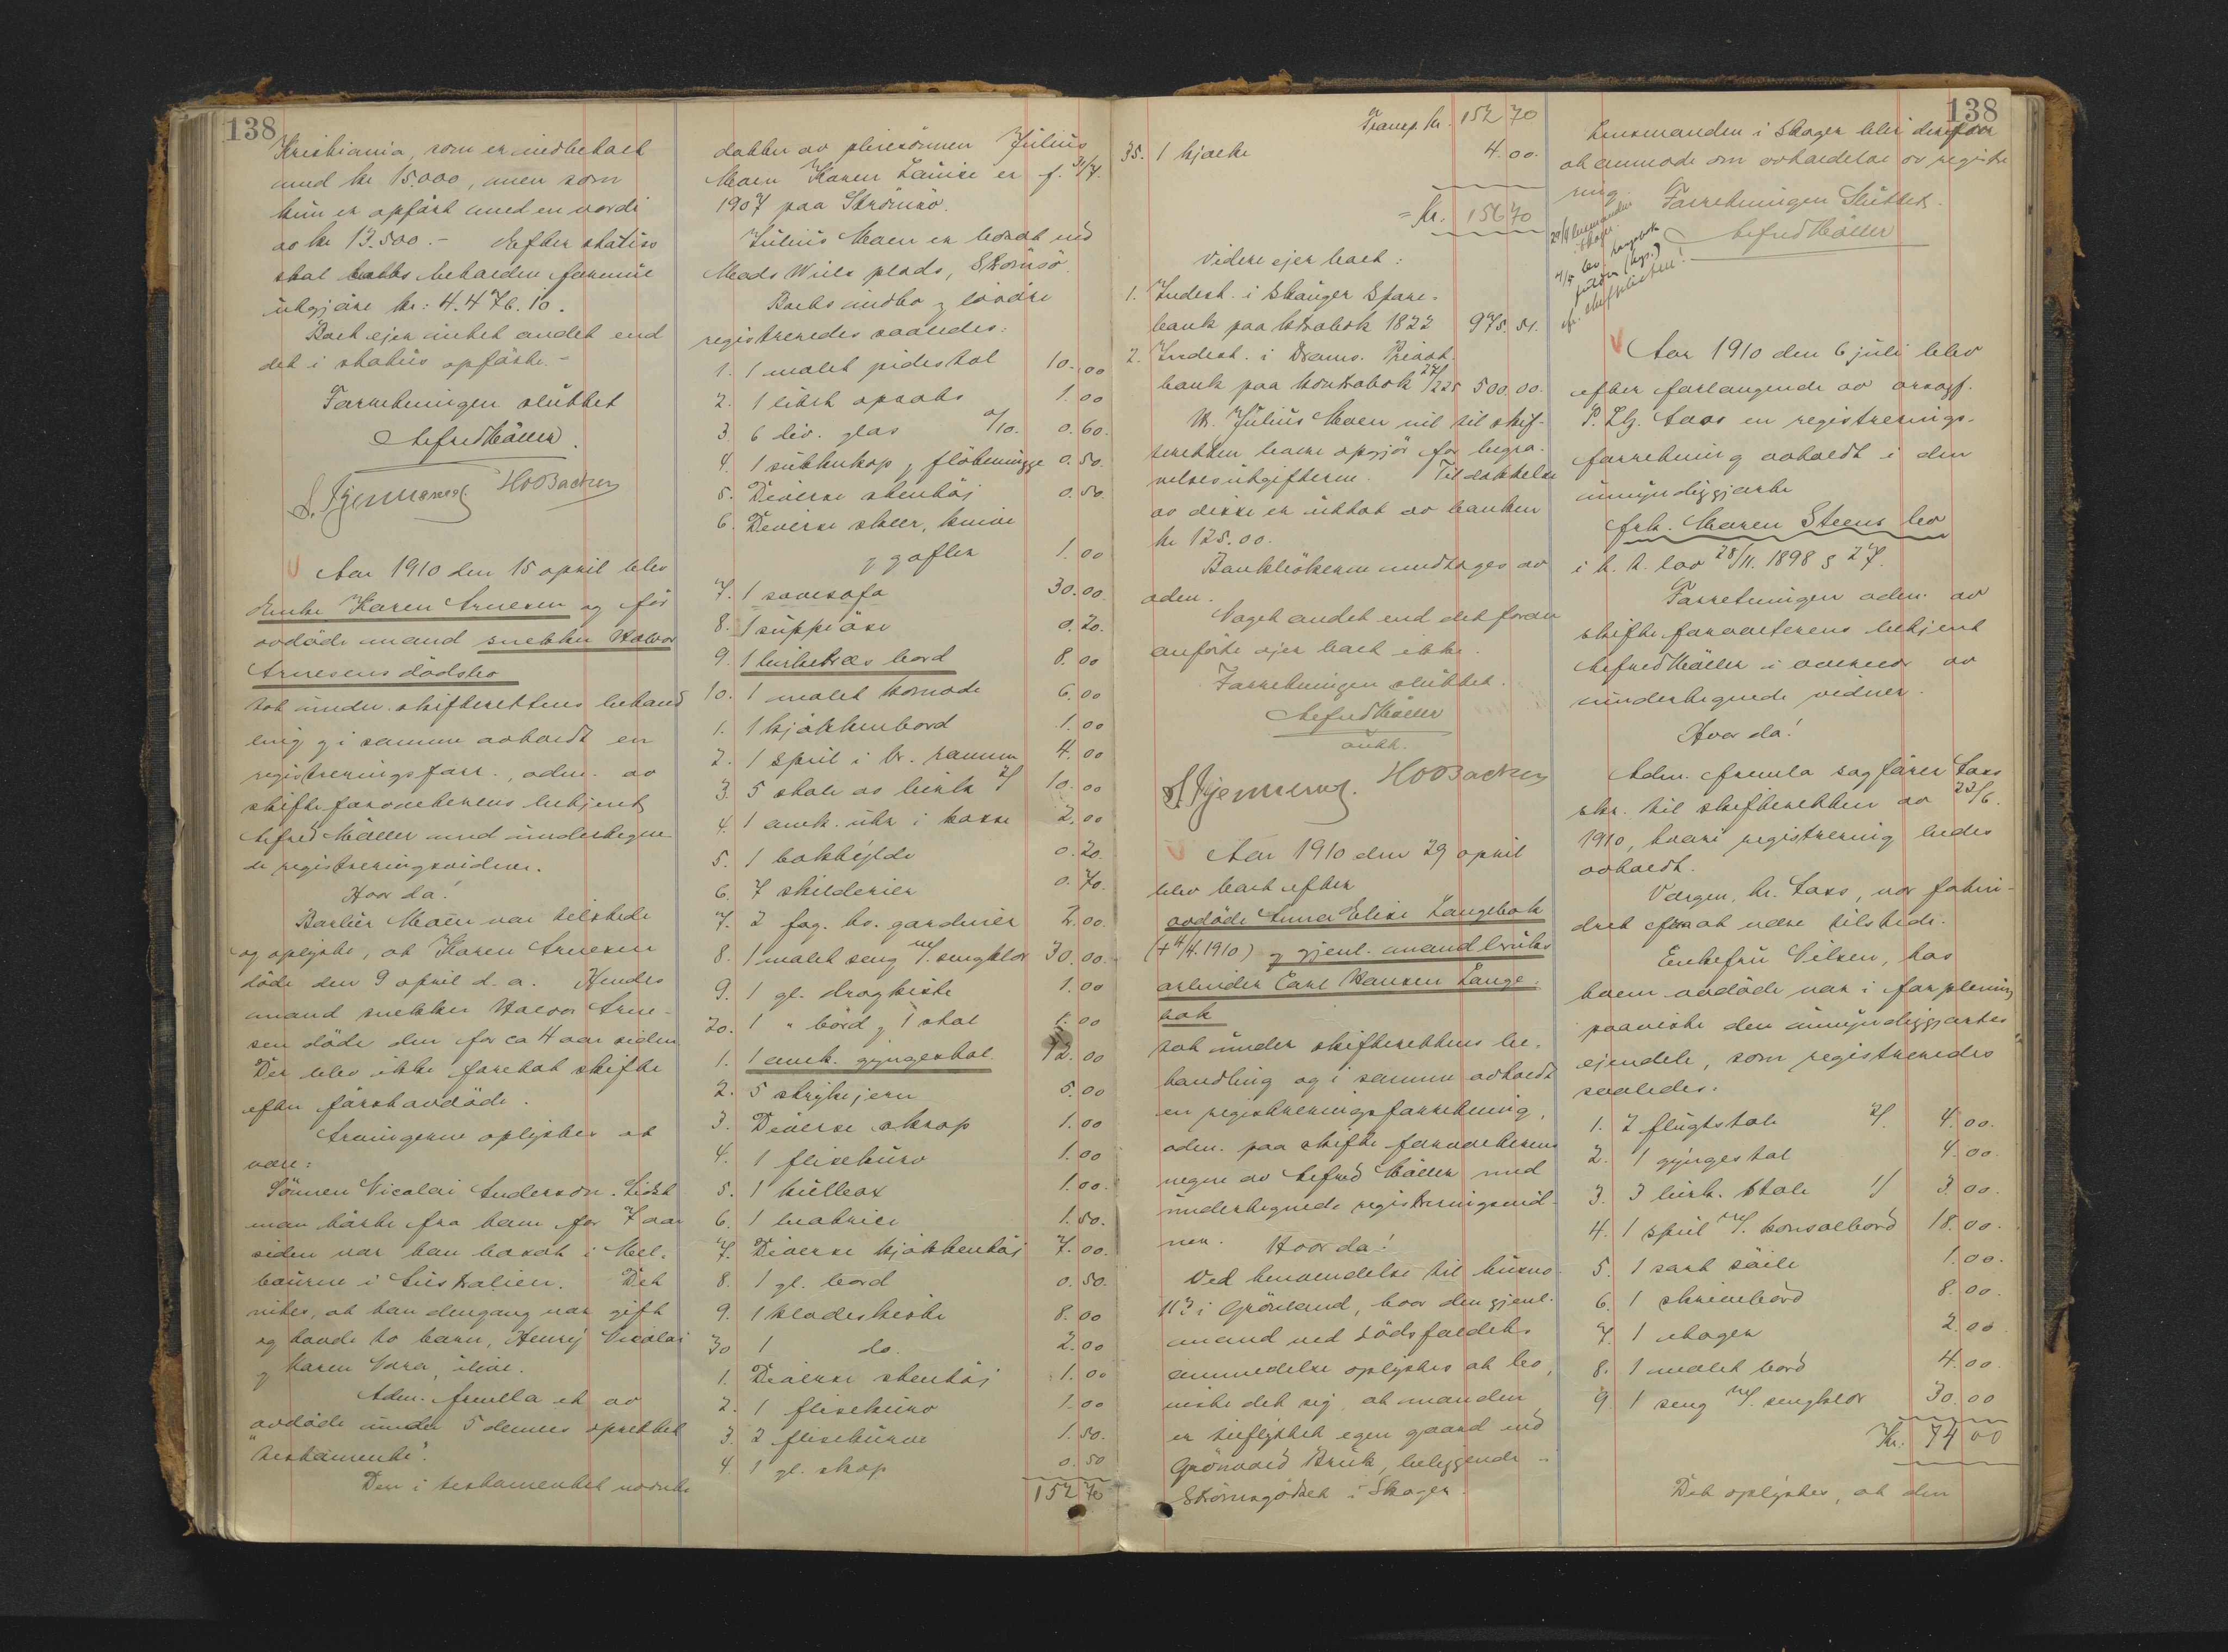 138
Kristiania, som er indbetalt
med kr 15.000, men som
kun er opført med en værdi
av kr 13.500.- Efter status
skal boets beholdne formue
utgjøre kr: 4.476.10.
Boet ejer intet andet end
det i status opførte.-
Forretningen sluttet
Alfred Møller.
HOBacken
Aar 1910 den 15 april blev
Enke Karen Arnesen og før
avdøde mand snekker Halvor
Arnesens dødsbo
tat under skifterettens behand
ling og i samme avholdt en
registreringsforr., adm. av
skifteforvalterens betjent
Alfred Møller med undertegne
de registreringsvidner.
Hvor da!
Julius Moen var tilstede
og oplyste, at Karen Arnesen
døde den 9 april d.a. Hendes
mand snekker Halvor Arne-
sen døde den for ca 4 aar siden
Der blev ikke foretat skifte
efter førstavdøde.
Arvingerne oplystes at
være:
Sønnen Nicolai Anderson. Sidst
man hørte fra ham for 7 aar
siden var han bosat i Mel-
bourne i Australien. Det
vites, at han dengang var gift
og havde to barn, Henry Nicolai
og Karen Nora, ilive.
Adm. fremla et av
avdøde under 5 dennes oprettet
"testamente".
Den i testamentet nævnte
datter av pleiesønnen Julius
Moen Karen Louise er f. 31/7.
1907 paa Strømsø.
Julius Moen er bosat ved
Mads Wiels plads, Strømsø.
Boets indbo og løsøre
registreredes saaledes:
1. 1 malet pidestal 10.00
2. 1 litet opsats 1.00
3. 6 div. glas a/10. 0.60.
4. 1 sukkerkop og fløtemugge 0.50.
5. Diverse stentøj 0.50.
6. Diverse skeer, knive
og gafler 1.00
7. 1 sovesofa 30.00.
8. 1 suppeøse 0.20.
9. 1 birketræs bord 8.00
10. 1 malet komode 6.00
1. 1 kjøkkenbord 1.00
2. 1 speil i br. ramme 4.00
3. 5 stole av birk 2/ 10.00
4. 1 amk. uhr i kasse 2.00
5. 1 bokhylde 0.20.
6. 7 skilderier 0.70.
7. 2 fag. hv. gardiner 2.00.
8. 1 malet seng m/. sengklær 30.00.
9. 1 gl. dragkiste 1.00
20. 1 " bord og 1 stol 1.00
1. 1 amk. gyngestol 12.00
2. 5 strykejern 5.00
3. Diverse skrap 1.00
4. 1 flisekurv 1.00
5. 1 kulbox 1.00.
6. 1 hvatrice 1.50.
7. Diverse kjøkkentøj 7.00.
8. 1 gl. bord 0.50.
9. 1 klædeskiste 8.00
30 1 do. 2.00
1. Diverse stentøj 1.00
2. 1 flisekurv 1.00
3. 2 flisekurve 1.50.
4. 1 gl. skap 0.50
152 70
138
Transp. kr. 152 70
35. 1 kjælke 4.00.
= kr. 156 70
Videre ejer boet:
1. Indest. i Skauger Spare-
bank paa ktrabok 1822 975.51.
2. Indest. i Drams. Privat
bank paa kontrabok 27/225 500.00.
Hr. Julius Moen vil til skif-
teretten levere opgjør for begra-
velsesutgifterne. Til dækkelse
av disse er uttat av banken
kr 125.00.
Bankbøkerne medtoges av
adm.
Noget andet end det foran
anførte ejer boet ikke.
Forretningen sluttet.
Alfred Møller
autt.
HOBacken
Aar 1910 den 29 april
blev boet efter
avdøde Anna Elise Langebak
(+ 4/4.1910) og gjenl. mand bruks
arbeider Carl Hansen Lange-
bak
tat under skifterettens be-
handling og i samme avholdt
en registreringsforretning,
adm. paa skifteforvalterens
vegne av Alfred Møller med
undertegnede registreringsvid-
ner. Hvor da!
Ved henvendelse til husno
113 i Grønland, hvor den gjenl.
mand ved dødsfaldets
anmeldelse oplystes at bo,
viste det sig at manden
er tilflyttet egen gaard ved
Grønvold Bruk, beliggende
Strømsgodset i Skoger.
Lensmanden i Skoger blir derfor
at anmode om avholdelse av registre
ring. Forretningen Sluttet.
Alfred Møller
Aar 1910 den 6 juli blev
efter forlangende av orsagf.
P. Lz. Saxs en registrerings-
forretning avholdt i den
umyndiggjorte
frk. Maren Steens bo
i h. t. lov 28/11. 1898 § 27.
Forretningen adm. av
skifteforvalterens betjent
Alfred Møller i overvær av
undertegnede vidner.
Hvor da!
Adm. fremla sagfører Saxs
skr. til skifteretten av 22/6.
1910, hvori registrering bedes
avholdt.
Værgen, hr. Saxs, var forhin-
dret fra at være tilstede.
Enkefru Nilsen, hos
hvem avdøde var i forpleining
paaviste den umyndiggjortes
ejendele, som registreredes
saaledes.
1. 2 flugtstole 2/ 4.00.
2. 1 gyngestol 4.00
3. 3 birk. stole 1/ 3.00.
4. 1 speil m/. konsolbord 18.00.
5. 1 sort søile 1.00.
6. 1 skrivebord 8.00.
7. 1 etager 2.00
8. 1 malet bord 4.00.
9. 1 seng m/. sengklær 30.00
Kr. 74 00
Det oplystes, at den